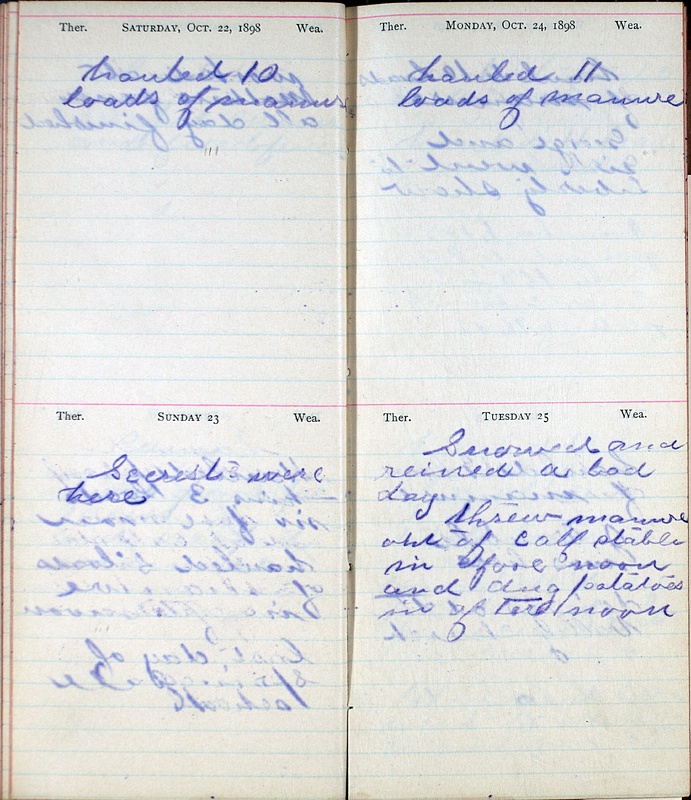 Ther. Saturday, Oct. 22, 1898 Wea.
hauled 10
loads of manure
Ther. Sunday 23 Wea.
Secrests were
here
Ther. Monday, Oct. 24, 1898 Wea.
hauled 11
loads of manure
Ther. Tuesday 25 Wea.
Snowed and
reined a bad
day
threw manure
out of calf stable
in fore noon
and dug potatoes
in after noon